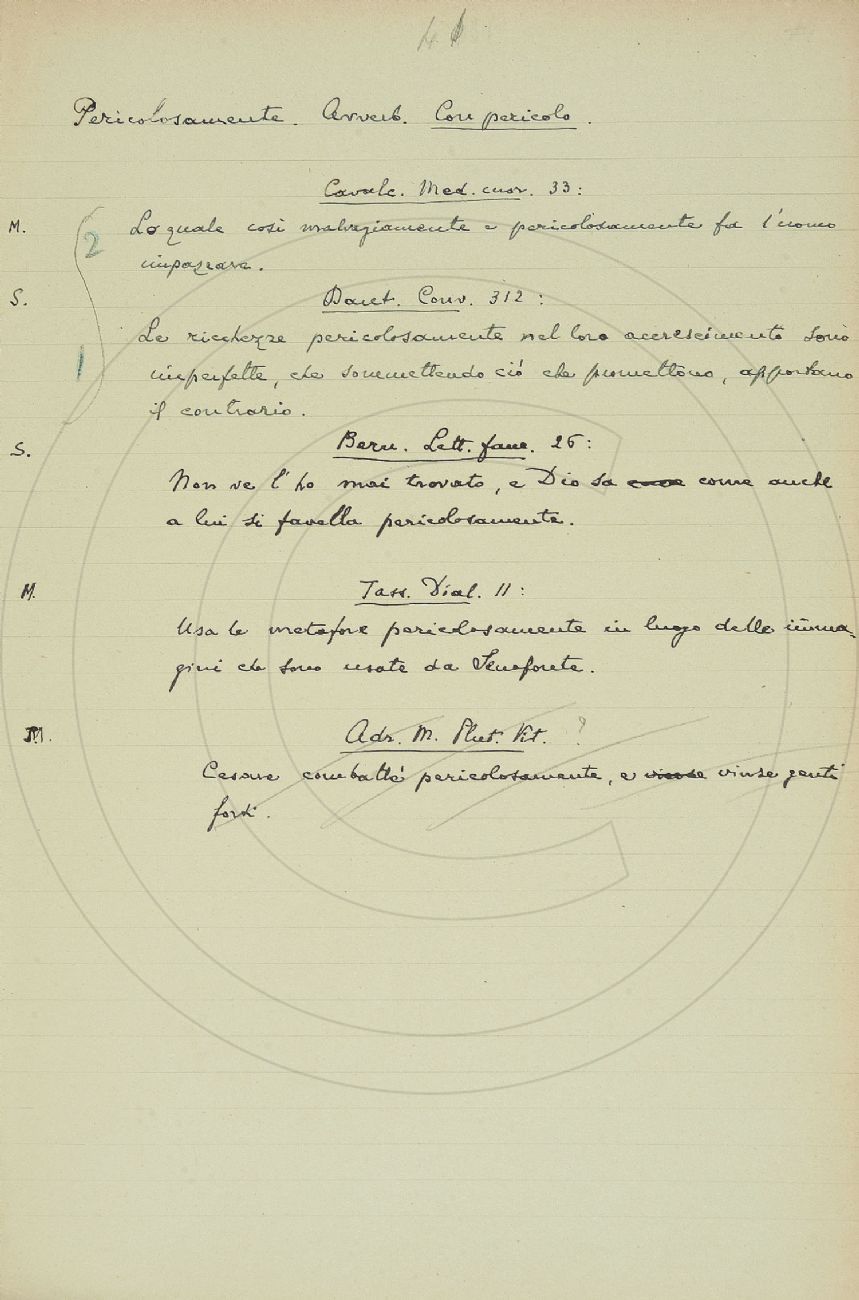 41
Pericolosamente. Avverb. Con pericolo.
Cavalc. Med. cuor. 33:
M. Lo quale così malvagiamente e pericolosamente fa l'uomo
2
impazzare.
S. Dant. Conv. 312:
Le ricchezze pericolosamente nel loro accrescimento sono
1 imperfette, che sommettendo ciò che promettono, apportano
il contrario.
S. Bern. Lett. fam. 26:
Non ve l'ho mai trovato, e Dio sa come anche
a lui si favella pericolosamente.
M. Tass. Dial. 11:
Usa le metafore pericolosamente in luogo delle imma-
gini che sono usate da Senofonte.
M. Adr. M. Plut. Vit. ?
Cesare combatté pericolosamente, e vinse genti
forti.